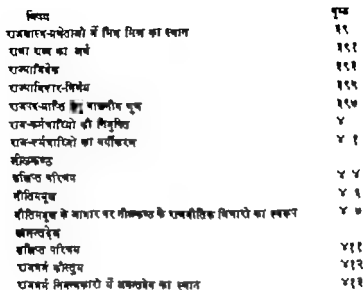 विषय पृष्ठ
राजशास्त्र-प्रणेताओं में मित्र मिश्र का स्थान ३९
राजा शब्द का अर्थ ३९१
राज्याभिषेक ३९१
राज्याधिकार-निर्णय ३९५
राजत्व-प्राप्ति वाछनीय गुण ३९७
राज-कर्मचारियों की नियुक्ति ४
राज-कर्मचारियों का वर्गीकरण ४ १
नीलकण्ठ
संक्षिप्त परिचय ४ ४
नीतिमयूख ४ ६
नीतिमयूख के आधार पर नीलकण्ठ के राजनीतिक विचारों का स्वरूप ४ ७
अनन्तदेव
संक्षिप्त परिचय ४११
राजधर्म कौस्तुभ ४१२
राजधर्म निबन्धकारों में अनन्तदेव का स्थान ४१३